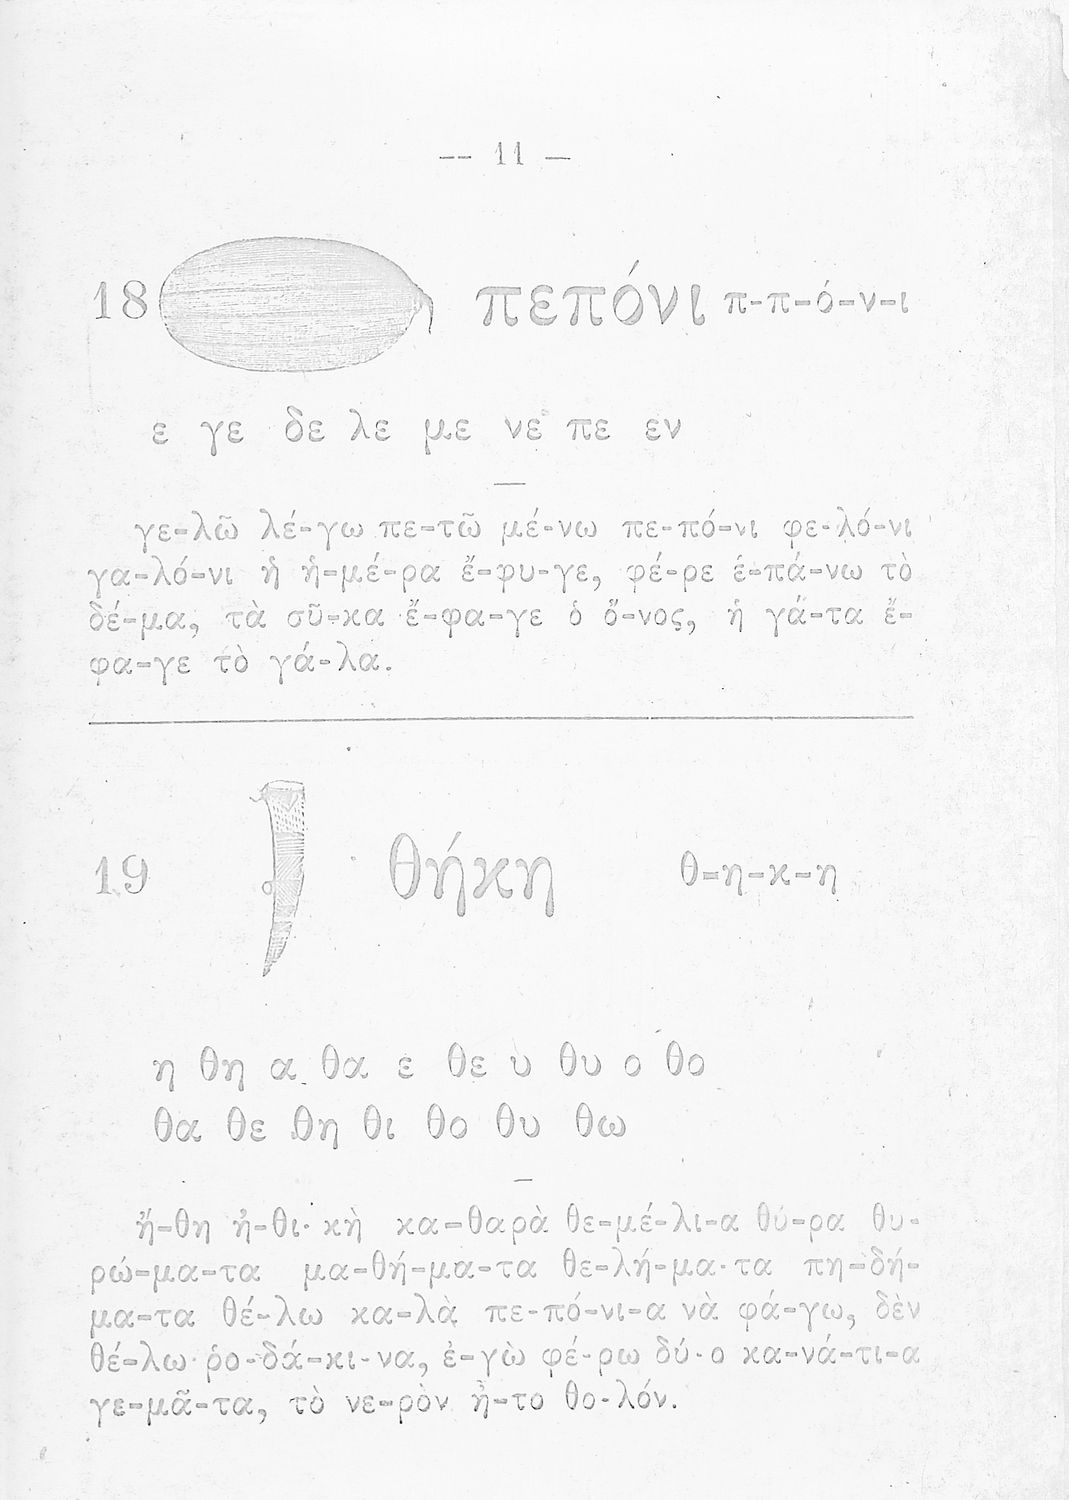 — 11 —
18 πεπόνι π-π-ό-ν-ι
ε γε δε λε με νε πε εν
γε-λῶ λέ-γω πε-τῶ μέ-νω πε-πό-νι φε-λό-νι
γα-λό-νι ἡ ἡ-μέ-ρα ἔ-φυ-γε, φέ-ρε ἐ-πά-νω τὸ
δέ-μα, τὰ σῦ-κα ἔ-φα-γε ὁ ὄ-νος, ἡ γά-τα ἔ-
φα-γε τὸ γά-λα.
19 θήκη θ-η-κ-η
η θη α θα ε θε υ θυ ο θο
θα θε θη θι θο θυ θω
ἤ-θη ἠ-θι-κὴ κα-θαρὰ θε-μέ-λι-α θύ-ρα θυ-
ρώ-μα-τα μα-θή-μα-τα θε-λή-μα-τα πη-δή-
μα-τα θέ-λω κα-λὰ πε-πό-νι-α νὰ φά-γω, δὲν
θέ-λω ῥο-δά-κι-να, ἐ-γὼ φέ-ρω δύ-ο κα-νά-τι-α
γε-μᾶ-τα, τὸ νε-ρὸν ἦ-το θο-λόν.